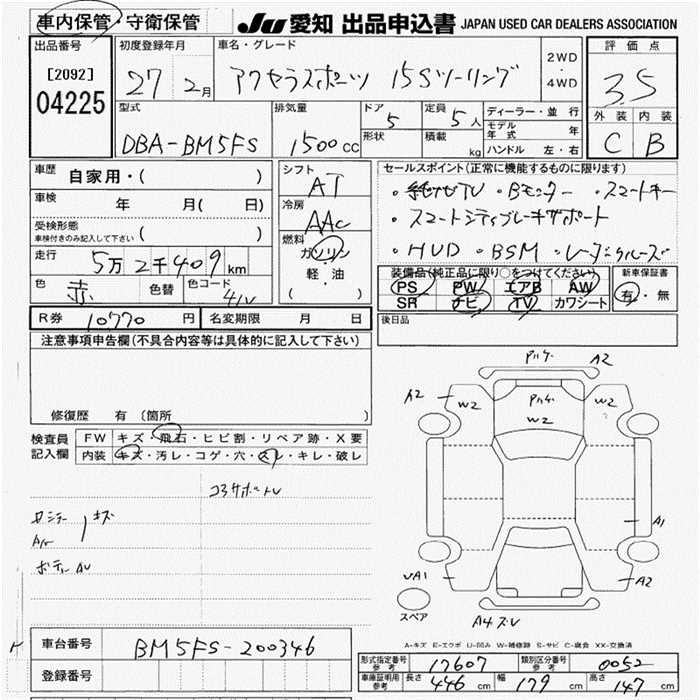 車内保管・守衛保管 JU 愛知 出品申込書 JAPAN USED CAR DEALERS ASSOCIATION
出品番号 初度登録年月 車名・グレード 2WD 評価点
[2092] 27 2月 アクセラスポーツ 15Sツーリング ・ 3.5
04225 4WD
型式 排気量 ドア 定員 ディーラー・並行 外装 内装
DBA-BM5FS 1500cc 5 5人 モデル年式 年 C B
形状 積載 kg ハンドル 左・右
車歴 自家用・( ) シフト AT セールスポイント(正常に機能するものに限ります)
車検 年 月( 日) 冷房 AAC ・純ナビTV ・Bモニター ・スマートキー
受検形態 ・スマートシティブレーキサポート
車検付きのみ記入して下さい ( ) 燃料 ガソリン ・HUD ・BSM ・レーダークルーズ
走行 5万2千409km 軽・油 装備品(純正品に限り○をつけてください) 新車保証書
色 赤 色替 色コード 41V ( ) PS PW エアB AW 有・無
SR ナビ TV カワシート
R券 10770円 名変期限 月 日 後日品
注意事項申告欄(不具合内容等は具体的に記入して下さい)
修復歴 有(箇所 )
検査員 FW キズ・飛石・ヒビ割・リペア跡・X要
記入欄 内装 キズ・汚レ・コゲ・穴・スレ・キレ・破レ
キズ
A2
A2 W2 W2 W2
A1
UA1 A2
スペア A4 ズレ
A-キズ E-エクボ U-凹み W-補修跡 S-サビ C-腐食 XX-交換済
車台番号 BM5FS-200346
登録番号
型式指定番号 参考 17607 類別区分番号 参考 0052
車庫証明用 参考 長さ 446cm 幅 179cm 高さ 147cm